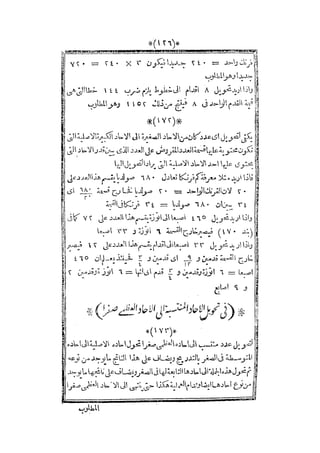 *(١٢٦)*
فرنك واحد = ٢٤٠ جديدا فيكون ٣ × ٢٤٠ = ٧٢٠
جديدا وهو المطلوب
واذا اريد تحويل ٨ اقدام الى خطوط يلزم ضرب ١٤٤ خطا التى هى
قيمة القدم الواحد فى ٨ فينتج من ذلك ١١٥٢ وهو المطلوب
*(١٧٢)*
يكفى لتحويل اى عدد كان من الآحاد الصغيرة الى الآحاد الكبيرة الاصلية التى
تكون محتوية عليها قسمة العدد المفروض على العدد الذى يبين قدر الآحاد التى
يحتوى عليها احد الآحاد الاصلية التى يراد التحويل اليها
فاذا اريد مثلا معرفة كم فرنكا تعادل ٦٨٠ صولديا يقسم هذا العدد على
٢٠ لان الفرنك الواحد = ٢٠ صولديا فخارج قسمة ٦٨٠/٢٠ اى
٣٤ يبين ان ٦٨٠ صولديا = ٣٤ فرنكا فى القيمة
واذا اريد تحويل ٤٦٥ اصبعا الى اتوازة يقسم هذا العدد على ٧٢ كما فى
(بند ١٧٠) فيصير خارج القسمة ٦ اتوازة و ٣٣ اصبعا
واذا اريد تحويل ٣٣ اصبعا الى اقدام يقسم هذا العدد على ١٢ فيصير
خارج القسمة قدمين و ٩/١٢ اى قدمين و ٣/٤ فحينئذ يعلم ان ٤٦٥
اصبعا = ٦ اتوازة وقدمين و ٣/٤ قدم اى انها = ٦ اتوازة وقدمين ٢
و ٩ اصابع
*(فى تحويل الآحاد المنتسبة الى الآحاد العظمى صغرا)*
*(١٧٣)*
لتحويل عدد منتسب الى آحاده العظمى صغرا تحول آحاده الاصلية الى آحاده
المتوسطة فى الصغر بالتدريج ويضاف على هذا الناتج ما يوجد من نوعه
ثم تحول هذه الجملة الى آحادها التابعة لها فى الصغر ويضاف على ناتجها ما يوجد
من نوع آحادها ايضا وتدام العملية هكذا حتى ينتهى الى الآحاد العظمى صغرا
المطلوب